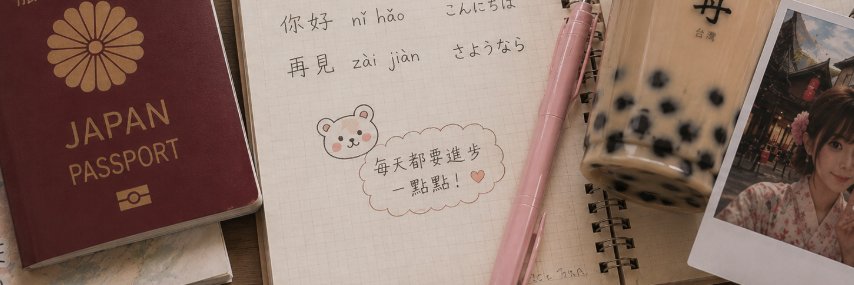 JAPAN
PASSPORT
你好 nǐ hǎo こんにちは
再見 zài jiàn さようなら
每天都要進步
一點點！
台灣